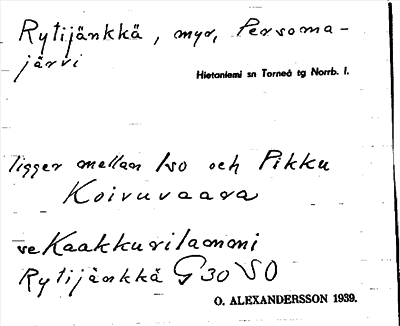 Rytijänkkä, myr, Persoma-
järvi
Hietaniemi sn Torneå tg Norrb. l.
ligger mellan Iso och Pikku
Koivuvaara
ve Kaakkurilammi
Rytijänkkä G 30 SO
O. ALEXANDERSSON 1939.